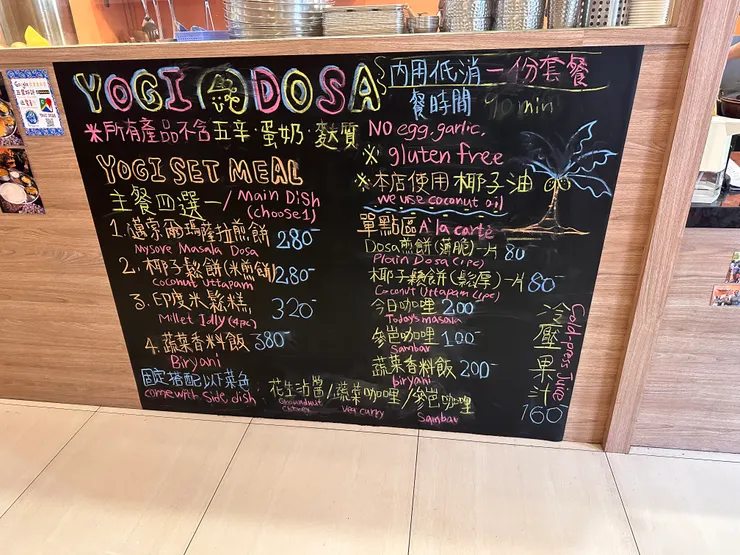 YOGI DOSA
※所有產品不含五辛·蛋奶·麩質
YOGI SET MEAL
主餐四選一/ Main Dish
(choose1)
1.邁索爾瑪薩拉煎餅 280-
Mysore Masala Dosa
2.椰子鬆餅(米煎餅) 280-
Coconut Uttapam
3.印度米鬆糕 320-
Millet Idly (4pc)
4.蔬菜香料飯 380-
Biryani
固定搭配以下菜色:
come with Side dish
花生沾醬/蔬菜咖哩/參峇咖哩
Groundnut Chutney Veg curry Sambar
內用低消一份套餐
餐時間 90 min
No egg.garlic.
※ gluten free
※本店使用椰子油
we use coconut oil
單點區 A'la carte
Dosa煎餅(薄脆)一片 80
Plain Dosa (1pc)
椰子鬆餅(鬆厚)一片 80-
Coconut Uttapam (1pc)
今日咖哩 200-
Today's masala
參峇咖哩 100-
Sambar
蔬菜香料飯 200-
Biryani
冷壓果汁
Cold-press Juice
160-